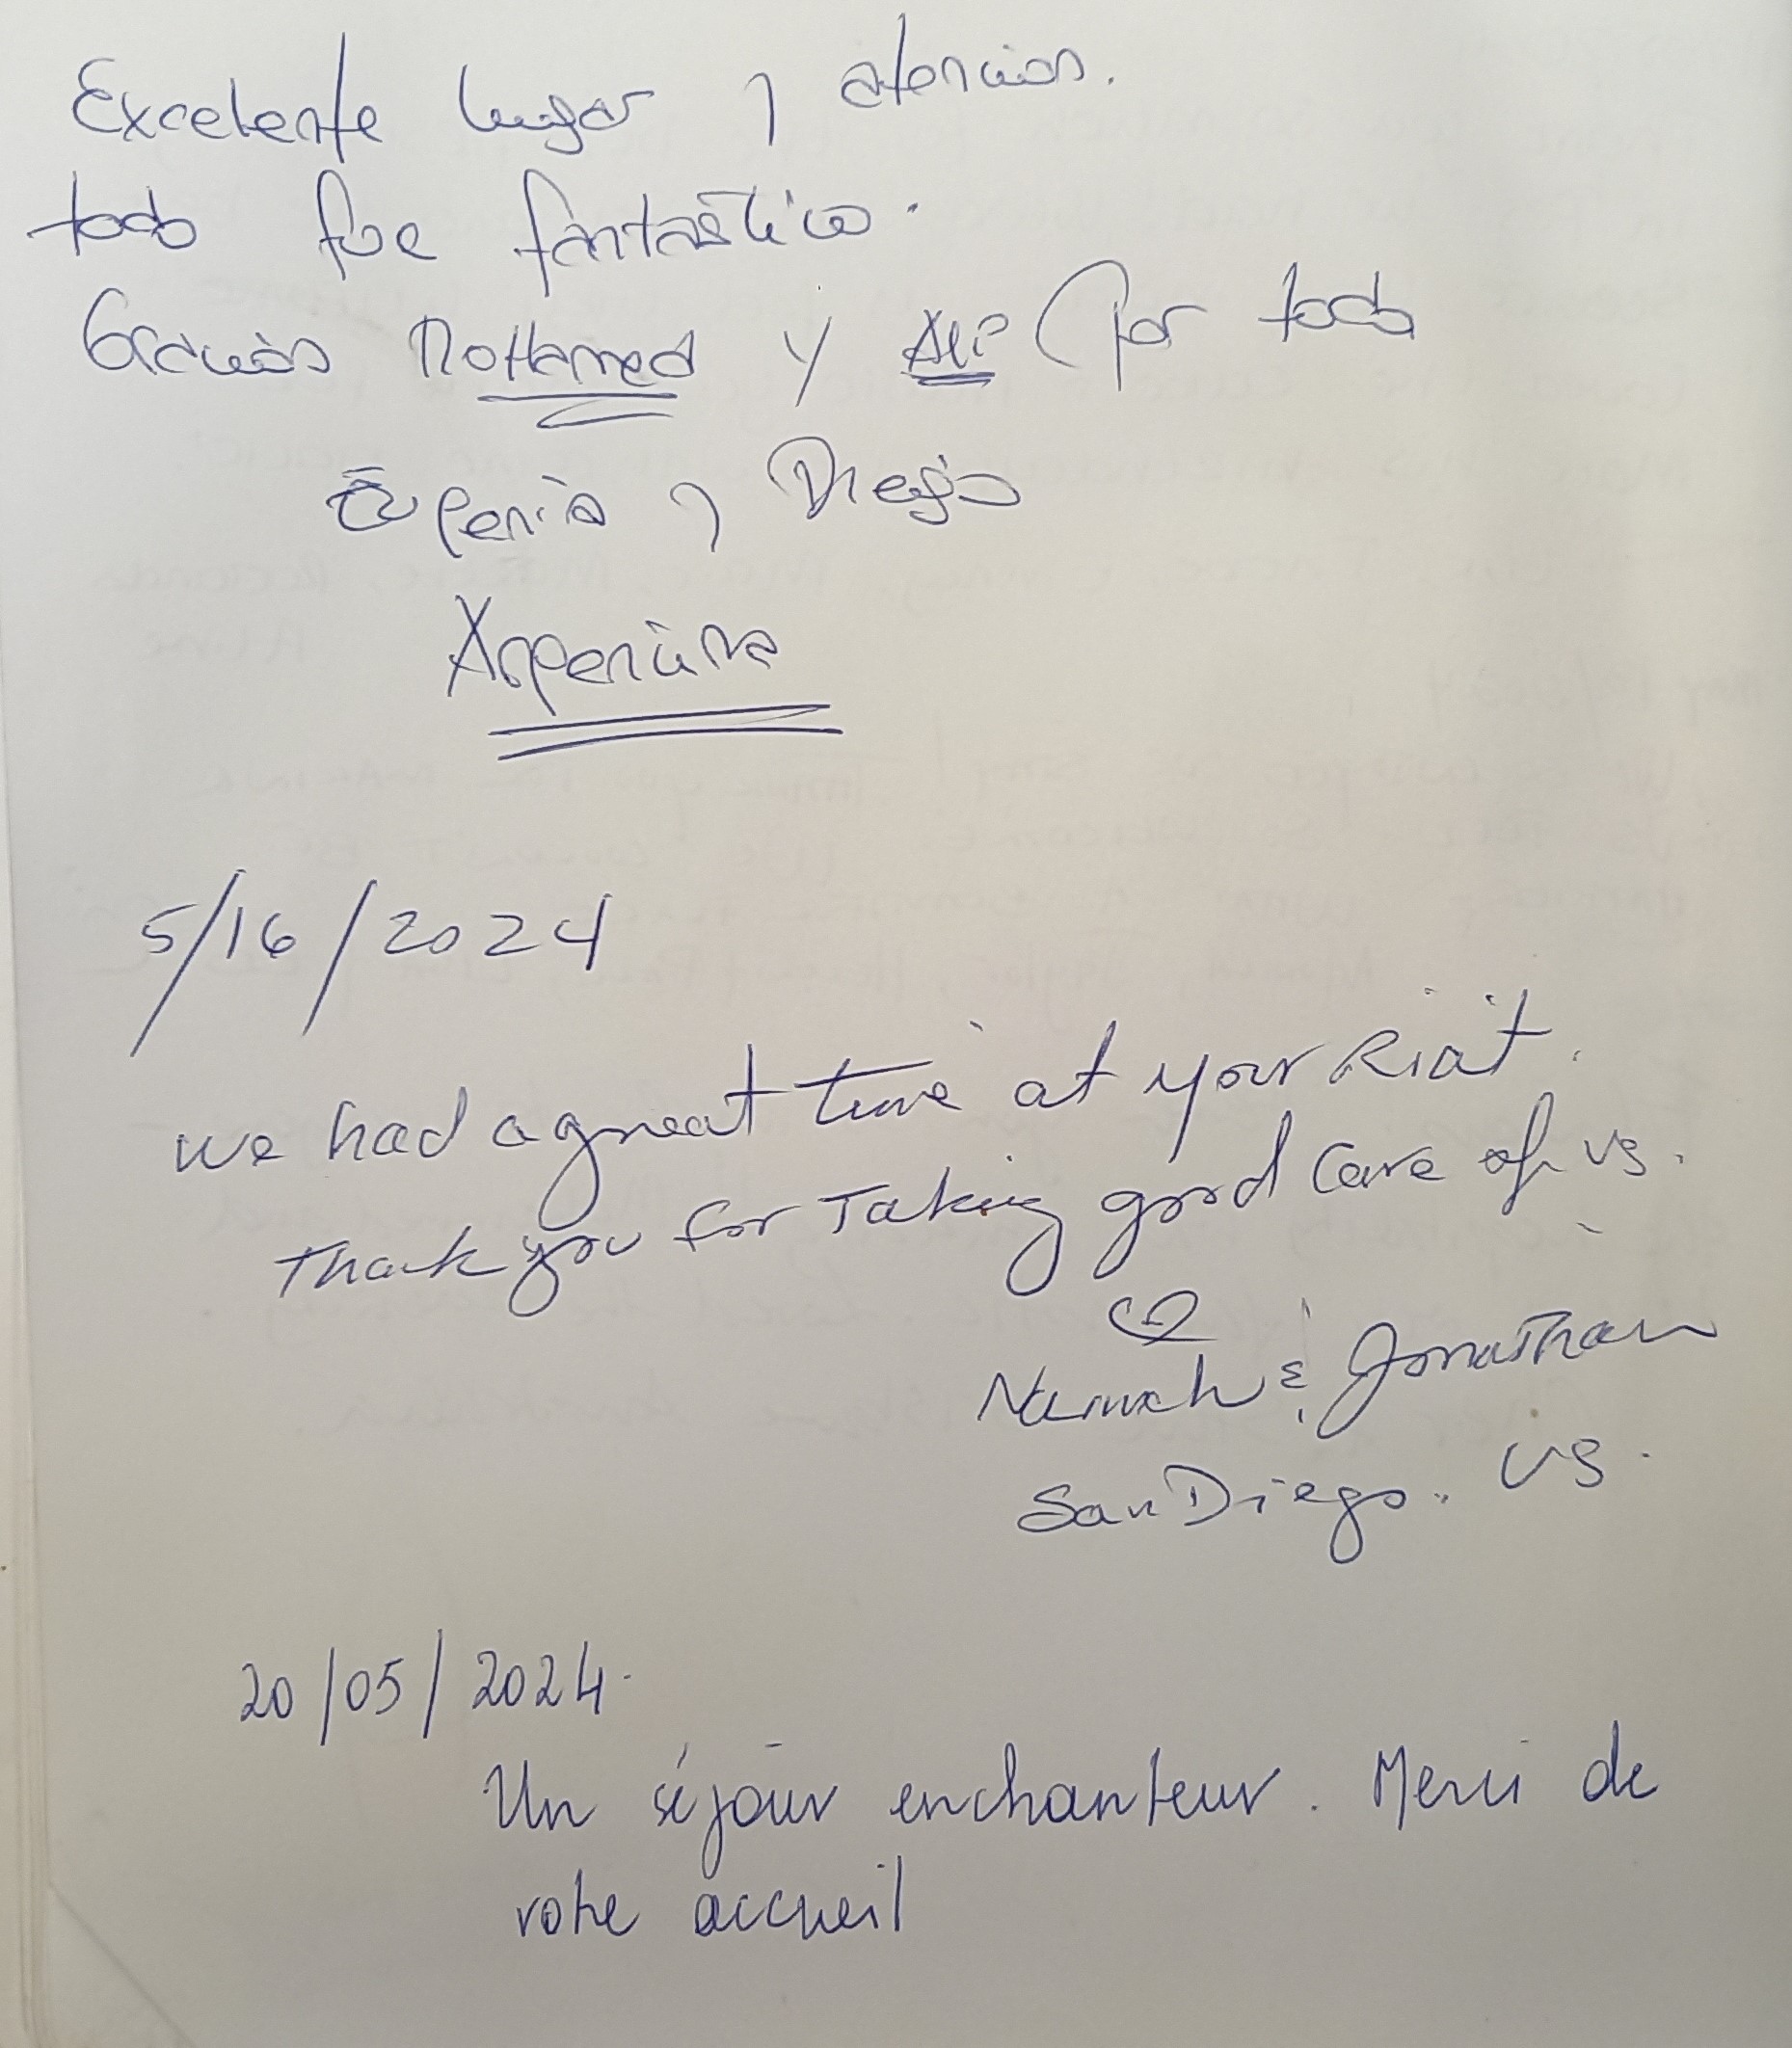 Excelente lugar y atención.
todo fue fantástico.
Gracias Mohamed y Ali por todo
Eugenia y Diego
Argentina
5/16/2024
we had a great time at your Riat.
Thank you for Taking good care of us.
& Jonathan
San Diego. US.
20/05/2024.
Un séjour enchanteur. Merci de
votre accueil